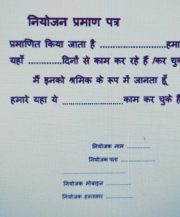 नियोजन प्रमाण पत्र
प्रमाणित किया जाता है .....................हमा
यहाँ ..............दिनों से काम कर रहे हैं /कर चु
मैं इनको श्रमिक के रूप में जानता हूँ
हमारे यहा ये .........................काम कर चुके हैं
नियोजक नाम ................
नियोजक पता ................
नियोजक मोबाइन ................
नियोजक हस्ताक्षर ................